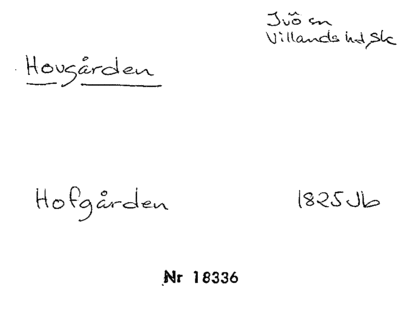 Ivö sn
Villands hd, Sk
Hovgården
Hofgården 1825 Jb
Nr 18336